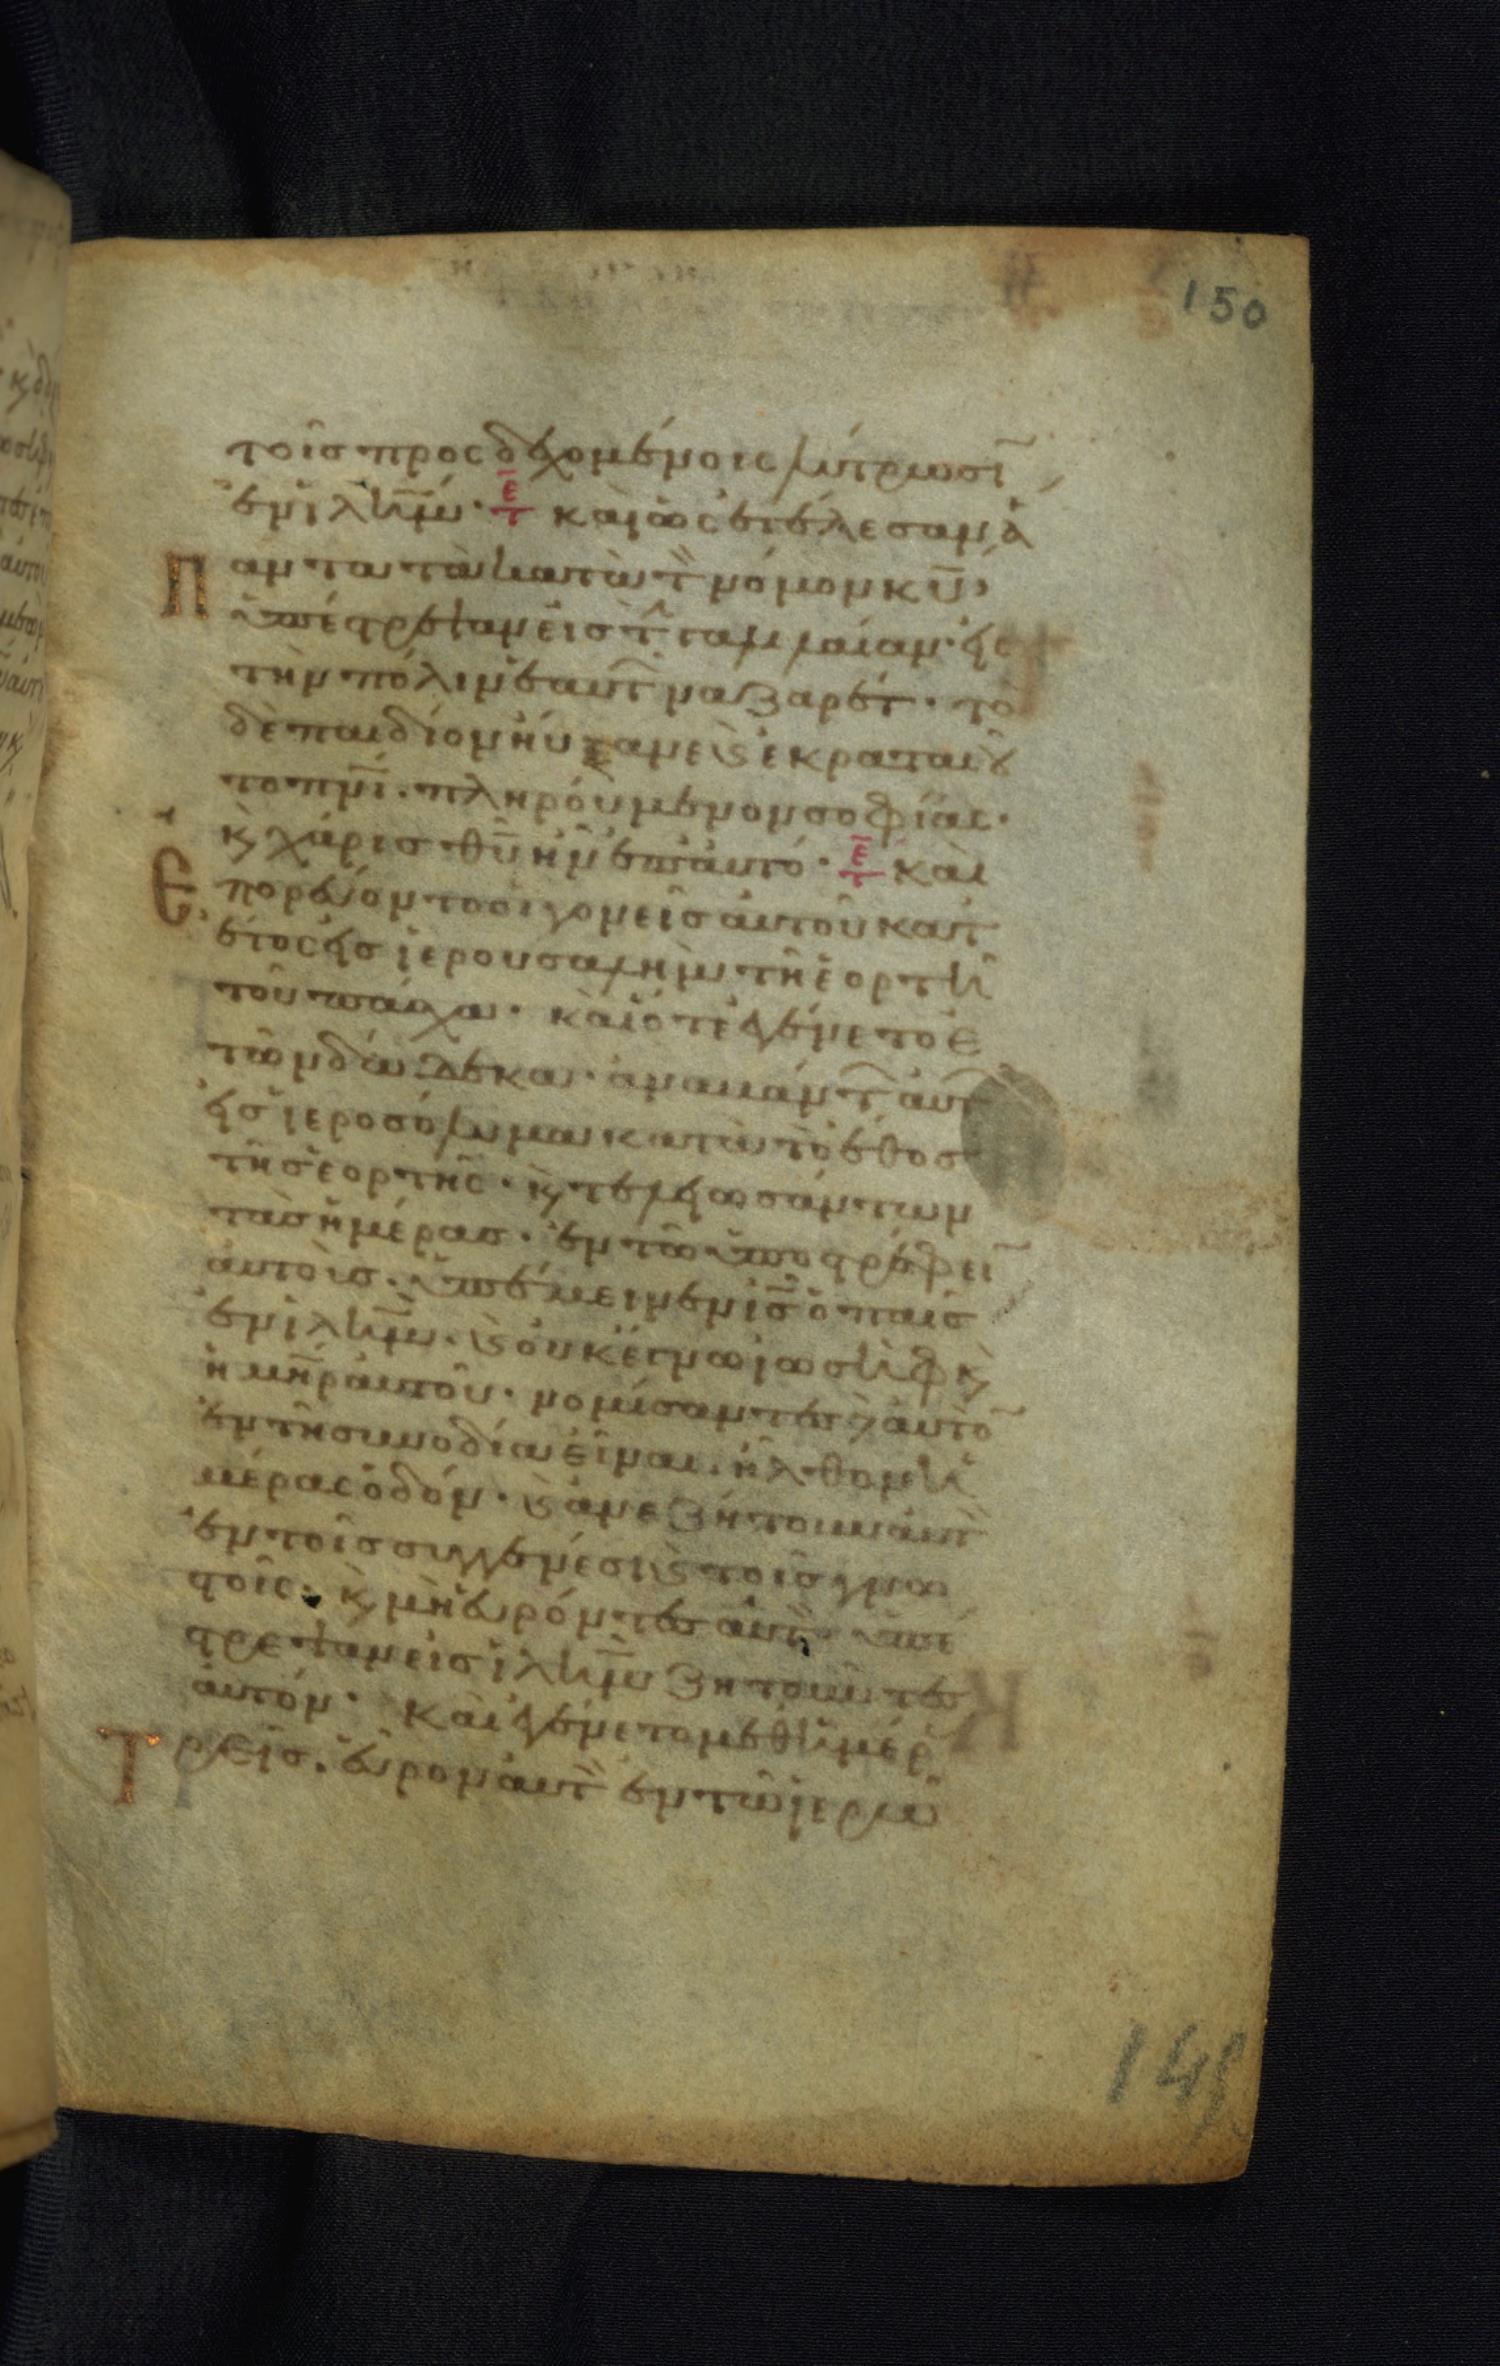 150
τοῖς προσδεχομένοις λύτρωσῑ
ἐν ῑλη̄μ· ε̄τ καὶ ὡς ἐτέλεσαν ἁ
πάντα τὰ κατὰ τ̀ νόμον κ̄υ,
ὑπέστρεψαν εἰς τ̀ γαλιλαίαν· εἰς
τὴν πόλιν ἑαυτ̄ ναζαρέτ· τὸ
δὲ παιδίον ηὔξανε κ̀ ἐκραταιοῦ
το π̄νῑ· πληρούμενον σοφίας·
κ̀ χάρις θ̄ῡ ἦν ἐπ' αὐτό· ε̄τ καὶ
Ἐπορεύοντο οἱ γονεῖς αὐτοῦ κατ'
ἔτος εἰς ἱερουσαλὴμ τῆ ἑορτῆ
τοῦ πάσχα· καὶ ὅτε ἐγένετο ἐ
τῶν δώδεκα· ἀναβάντ̄ αὐτ̄
εἰς ἱεροσόλυμα κατὰ τὸ ἔθος
τῆς ἑορτῆς· κ̀ τελειωσάντων
τὰς ἡμέρας· ἐν τῶ ὑποστρέφειν̄
αὐτοὺς· ὑπέμεινεν ῑς̄ ὁ παῖς
ἐν ῑλη̄μ· κ̀ οὐκ ἔγνω ἰωσὴφ κ̀
ἡ μη̄ρ αὐτοῦ· νομίσαντες δ αὐτὸ̄
ἐν τῆ συνοδία εἶναι· ἦλθον ἡ
μέρας ὁδόν· κ̀ ἀνεζήτουν αὐτ̀
ἐν τοῖς συγγενέσι κ̀ τοῖς γνω
στοῖς· κ̀ μὴ εὑρόντες αὐτ̀· ὑπέ
στρεψαν εἰς ῑλη̄μ ζητοῦντες
αὐτόν· καὶ ἐγένετο μεθ' ἡμέρ̄
Τρεῖς· εὗρον αὐτ̀ ἐν τῶ ἱερῶ
149